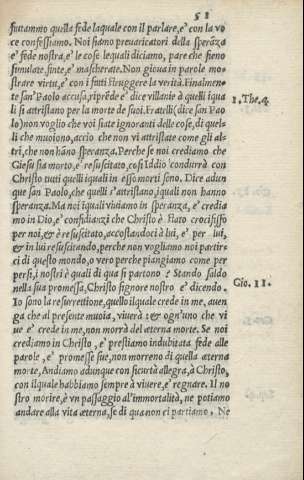 58
fiutammo quella fede laquale con il parlare, e' con la vo
ce confessiamo. Noi siamo prevaricatori della speraza
e' fede nostra, e' le cose lequali diciamo, pare che sieno
simulate, finte, e' mascherate. Non giova in parole mo-
strare virtu, e' con i fatti struggere la verità. Finalmen-
te san Paolo accusa, riprede e' dice villanie à quelli iqua
li si attristano per la morte de suoi. Fratelli (dice san Pao
lo) non voglio che voi siate ignoranti delle cose, di quel-
li che muoiono, accio che non vi attristate come gli al-
tri, che non hāno speranza. Perche se noi crediamo che
Giesu sia morto, e' resuscitato, cosi Iddio condurrà con
Christo tutti quelli iquali in esso morti sono. Dice adun
que san Paolo, che quelli s'attristano, iquali non hanno
speranza. Ma noi iquali viviamo in speranza, e' credia
mo in Dio, e' confidiāci che Christo è stato crocifisso
per noi, & è resuscitato, accostandoci à lui, e' per lui,
& in lui resuscitando, perche non vogliamo noi partir-
ci di questo mondo, o vero perche piangiamo come per
persi, i nostri è quali di qua si partono e' Stando saldo
nella sua promessa, Christo signore nostro e' dicendo.
Io sono la resurrettione, quello ilquale crede in me, auen
ga che al presente muoia, viverà & ogn'uno che vi
ve e' crede in me, non morrà del æterna morte. Se noi
crediamo in Christo, e' prestiamo indubitata fede alle
parole, e' promesse sue, non morreno di quella æterna
morte, Andiamo adunque con sicurtà allegra, à Christo,
con ilquale habbiamo sempre à vivere, e' regnare. Il no
stro morire, è vn passaggio al'immortalità, ne potiamo
andare alla vita æterna, se di qua non ci partiamo. Ne
1. The. 4
Gio. 11.